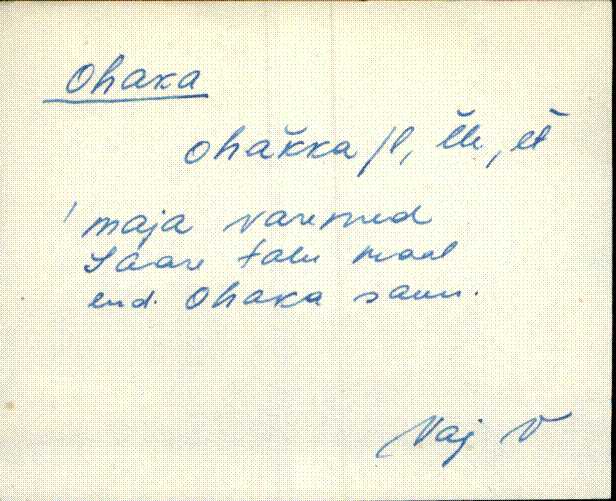 Ohaka
ohak̆ka /l, l̆le, l̆t
maja varemed
Saare talu maal
end. Ohaka saun.
Vaj V